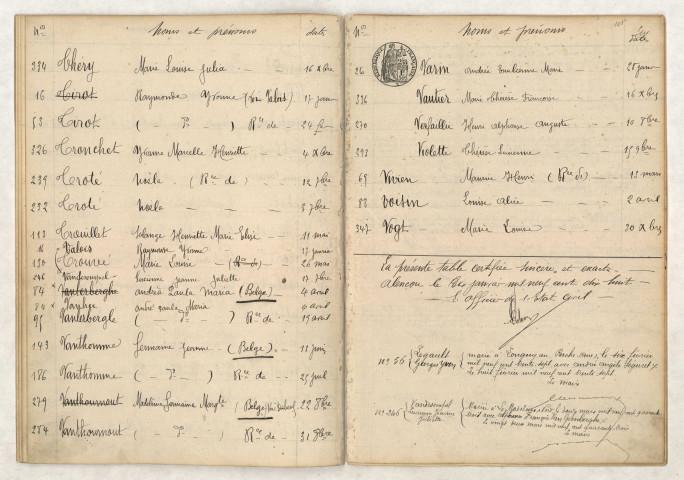 Nos Noms et prénoms date
234 Chéry Marie Louise Julia — 16 Xbre
16 Tirot Raymonde Yvonne (voir Valois) 17 janv
53 Tirot ( — do — ) Rce de — 24 f
326 Tronchet Yvonne Marcelle Henriette — 4 Xbre
239 Troté Noëla — (Rce de) — 12 7bre
232 Troté Noëla — 3 7bre
113 Trouillet Solange Henriette Marie Elise — 11 mai
16 Valois Raymonde Yvonne 17 janvier
130 Marie Louise — (Rce de) — 26 mai
246 Lucienne Jeanne Juliette 17 7bre
84 Vanlerberghe Andréa Paula Maria (Belge) — 4 avril
84 andré paula Maria avril
95 Vanlerbergle ( — do — ) Rce de — 15 avril
143 Vanthomme Germaine Jeanne — (Belge) — 11 juin
186 Vanthomme ( — do — ) Rce de — 25 juil
279 Vanthournout Madeleine Germaine (Belge) 22 8bre
284 Vanthournout ( — do — ) Rce de — 31 8bre
Nos Noms et prénoms Date
26 Varin Andrée Emilienne Marie — 28 janvier
336 Vautier Marie Thérèse Françoise — 16 Xbre
270 Versaillie Henri Alphonse Auguste — 10 8bre
293 Violette Thérèse Lucienne — 15 9bre
69 Vivien Maurice Henri (Rce de) — 13 mars
82 Voisin Louise Alice — 2 avril
347 Vogt Marie Louise — 30 Xbre
La présente table certifiée sincère et exacte
Alençon le dix janvier mil neuf cent dix huit
L'officier de l'Etat Civil
No 56 Legault Georges Yvon
marié à Longny au Perche Orne, le six février
mil neuf cent trente sept, avec
le huit février mil neuf cent trente sept
Le maire
No 246 Juliette
Marié à
le vingt deux mars mil neuf cent quarante
le maire